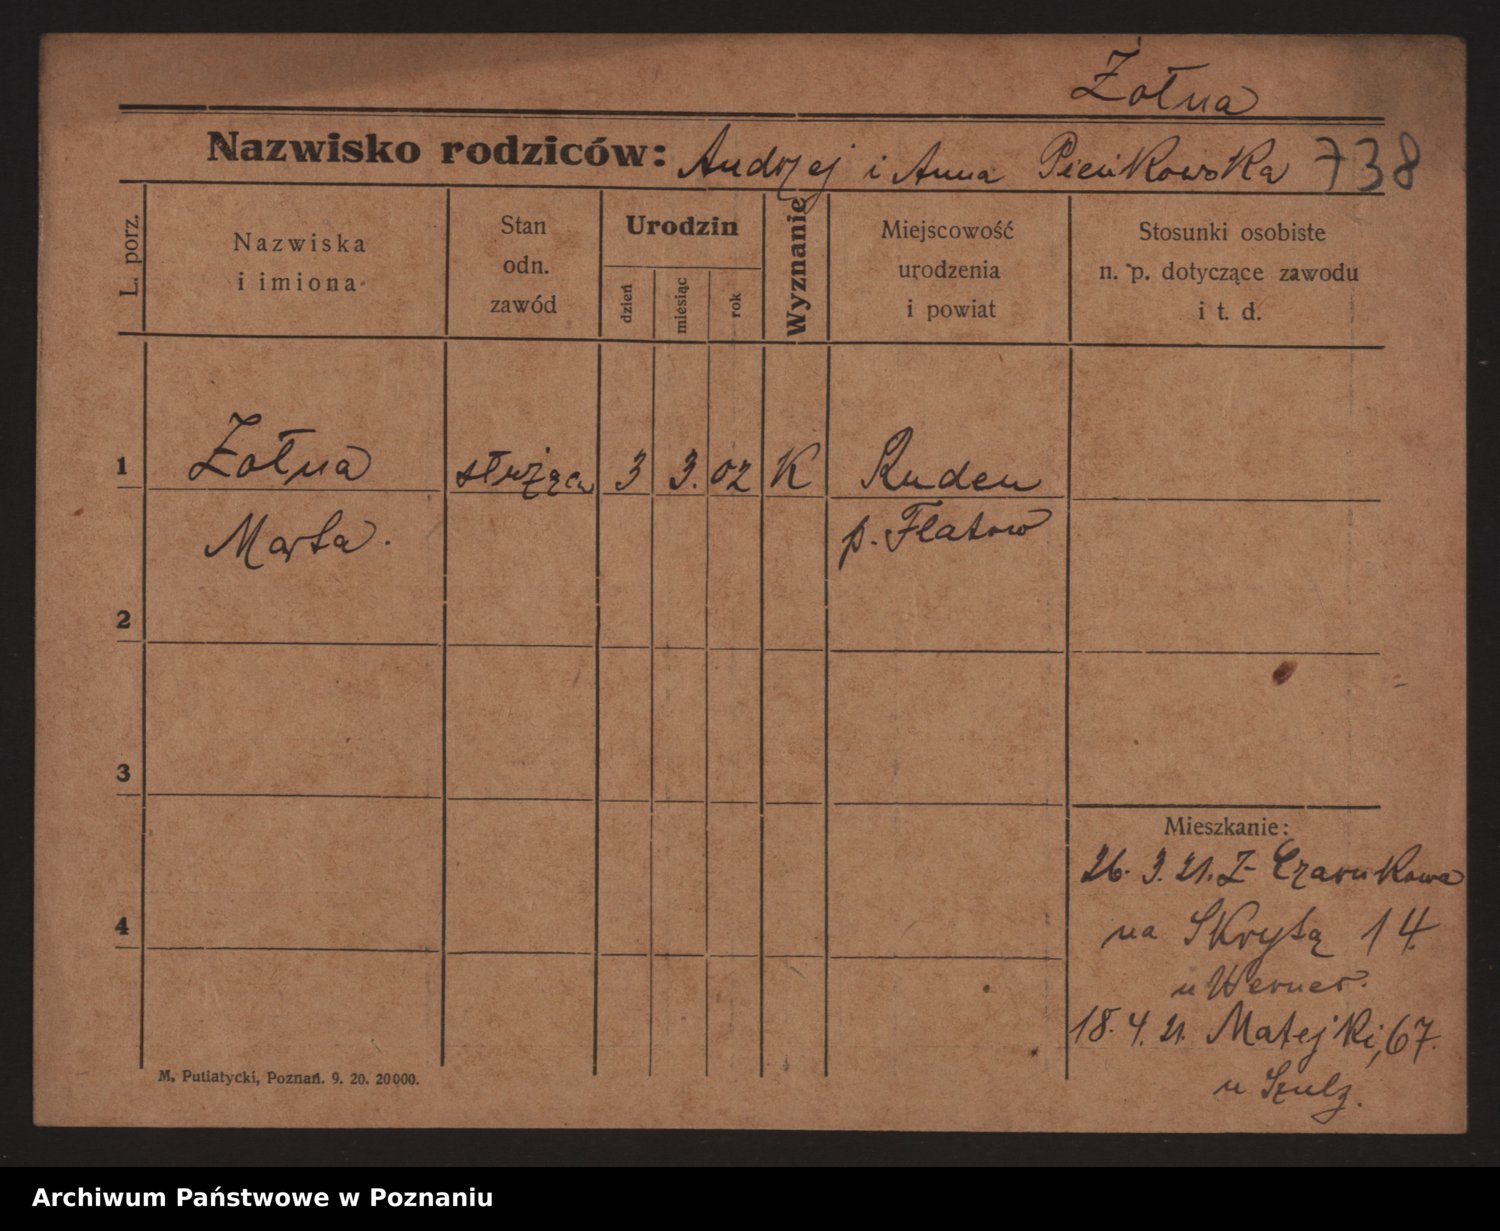 Żołna
Nazwisko rodziców: Andrzej i Anna Pieńkowska 738
L. porz.
Nazwiska
i imiona
Stan
odn.
zawód
Urodzin
dzień
miesiąc
rok
Wyznanie
Miejscowość
urodzenia
i powiat
Stosunki osobiste
n. p. dotyczące zawodu
i t. d.
1 Żołna służąca 3 3. 02 K Ruden
Marta. p. Flatow
2
3
4
Mieszkanie:
26. 3. 21. Z Czarnkowa
na Skrytą 14
u Werner.
18. 4. 21. Matejki, 67.
u Szulz.
M. Putiatycki, Poznań. 9. 20. 20000.
Archiwum Państwowe w Poznaniu